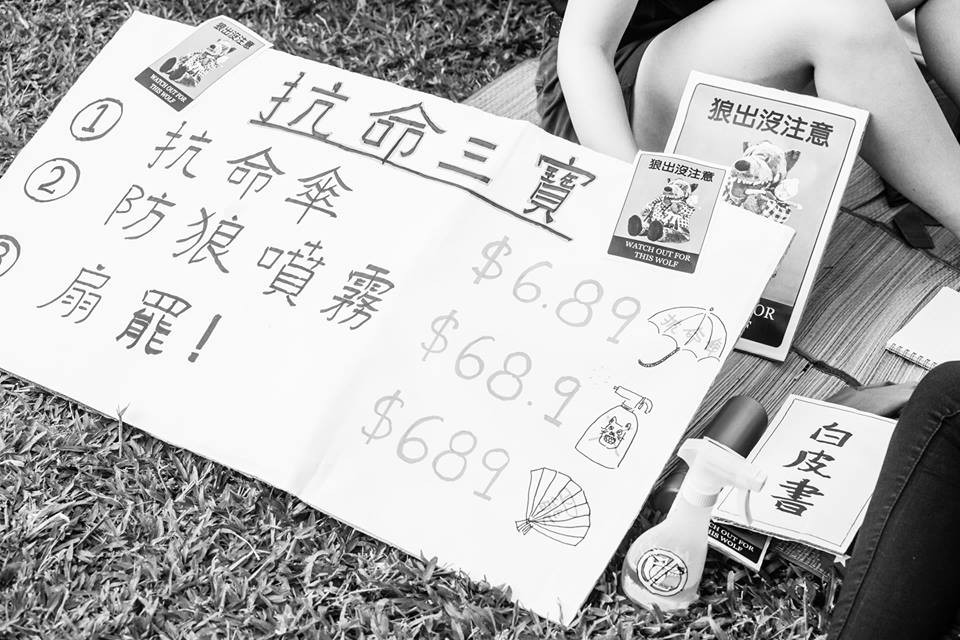 狼出沒注意
WATCH OUT FOR
THIS WOLF
抗命三寶
① 抗命傘
② 防狼噴霧
③ 扇罷!
$6.89
$68.9
$689
狼出沒注意
WATCH OUT FOR
THIS WOLF
狼出沒注意
OR
白皮書
WATCH OUT FOR
THIS WOLF